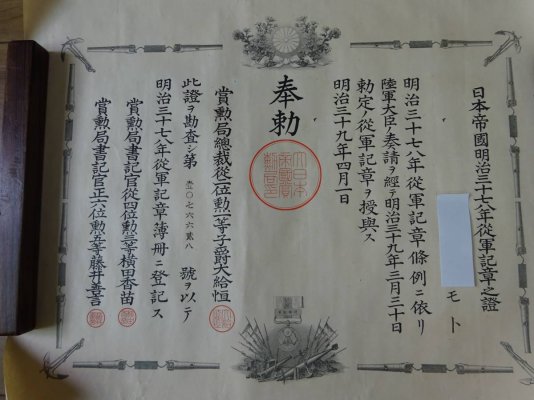 日本帝國明治三十七八年従軍記章之證
モト
明治三十七八年従軍記章條例ニ依リ
陸軍大臣ノ奏請ヲ經テ明治三十九年三月三十日
勅定ノ従軍記章ヲ授與ス
明治三十九年四月一日
奉勅
大日本帝國賞勲局印
賞勲局總裁従二位勲一等子爵大給恒
此證ヲ勘査シ第
号ヲ以テ
明治三十七八年従軍記章簿冊ニ登記ス
賞勲局書記官従四位勲三等横田香苗
賞勲局書記官正六位勲五等藤井善言